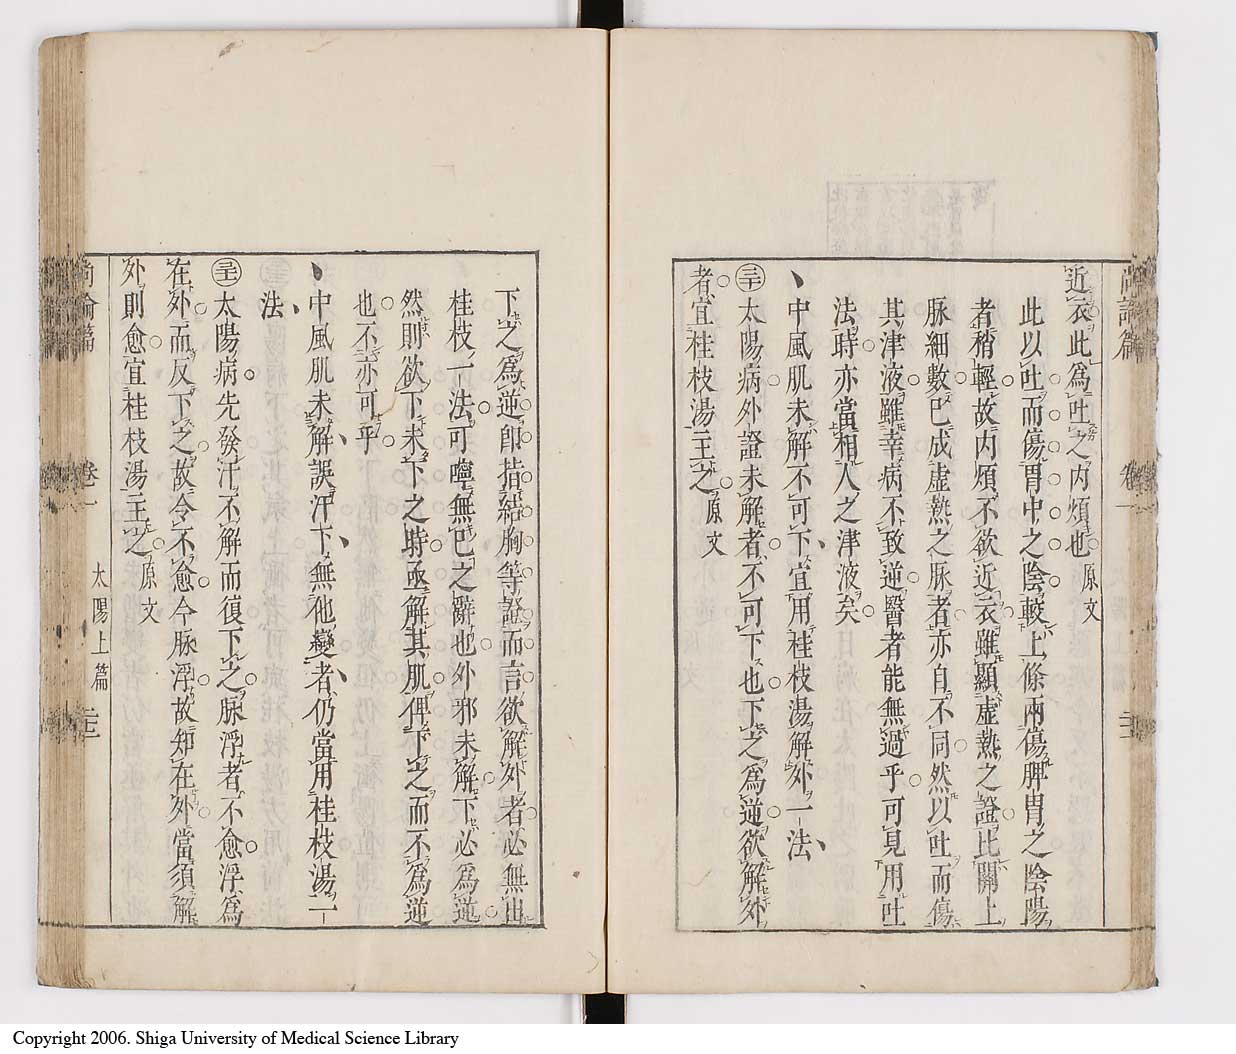 尚論篇 卷一
近衣此爲吐之内煩也 原文
此以吐而傷胃中之陰較上條兩傷脾胃之陰陽
者稍輕故内煩不欲近衣雖顯虛熱之證比關上
脉細數巳成虛熱之脉者亦自不同然以吐而傷
其津液雖幸病不致逆醫者能無過乎可見用吐
法時亦當相人之津液矣
中風肌未解不可下宜用桂枝湯解外一法
三十 太陽病外證未解者不可下也下之爲逆欲解外
者宜桂枝湯主之 原文
下之爲逆卽指結胸等證而言欲解外者必無出
桂枝一法可噬無巳之辭也外邪未解下必爲逆
然則欲下未下之時亟解其肌俾下之而不爲逆
也不亦可乎
中風肌未解誤汗下無他變者仍當用桂枝湯一
法
太陽病先發汗不解而復下之脉浮者不愈浮爲
在外而反下之故令不愈今脉浮故知在外當須解
外則愈宜桂枝湯主之 原文
尚論篇 卷一 太陽上篇
Copyright 2006. Shiga University of Medical Science Library